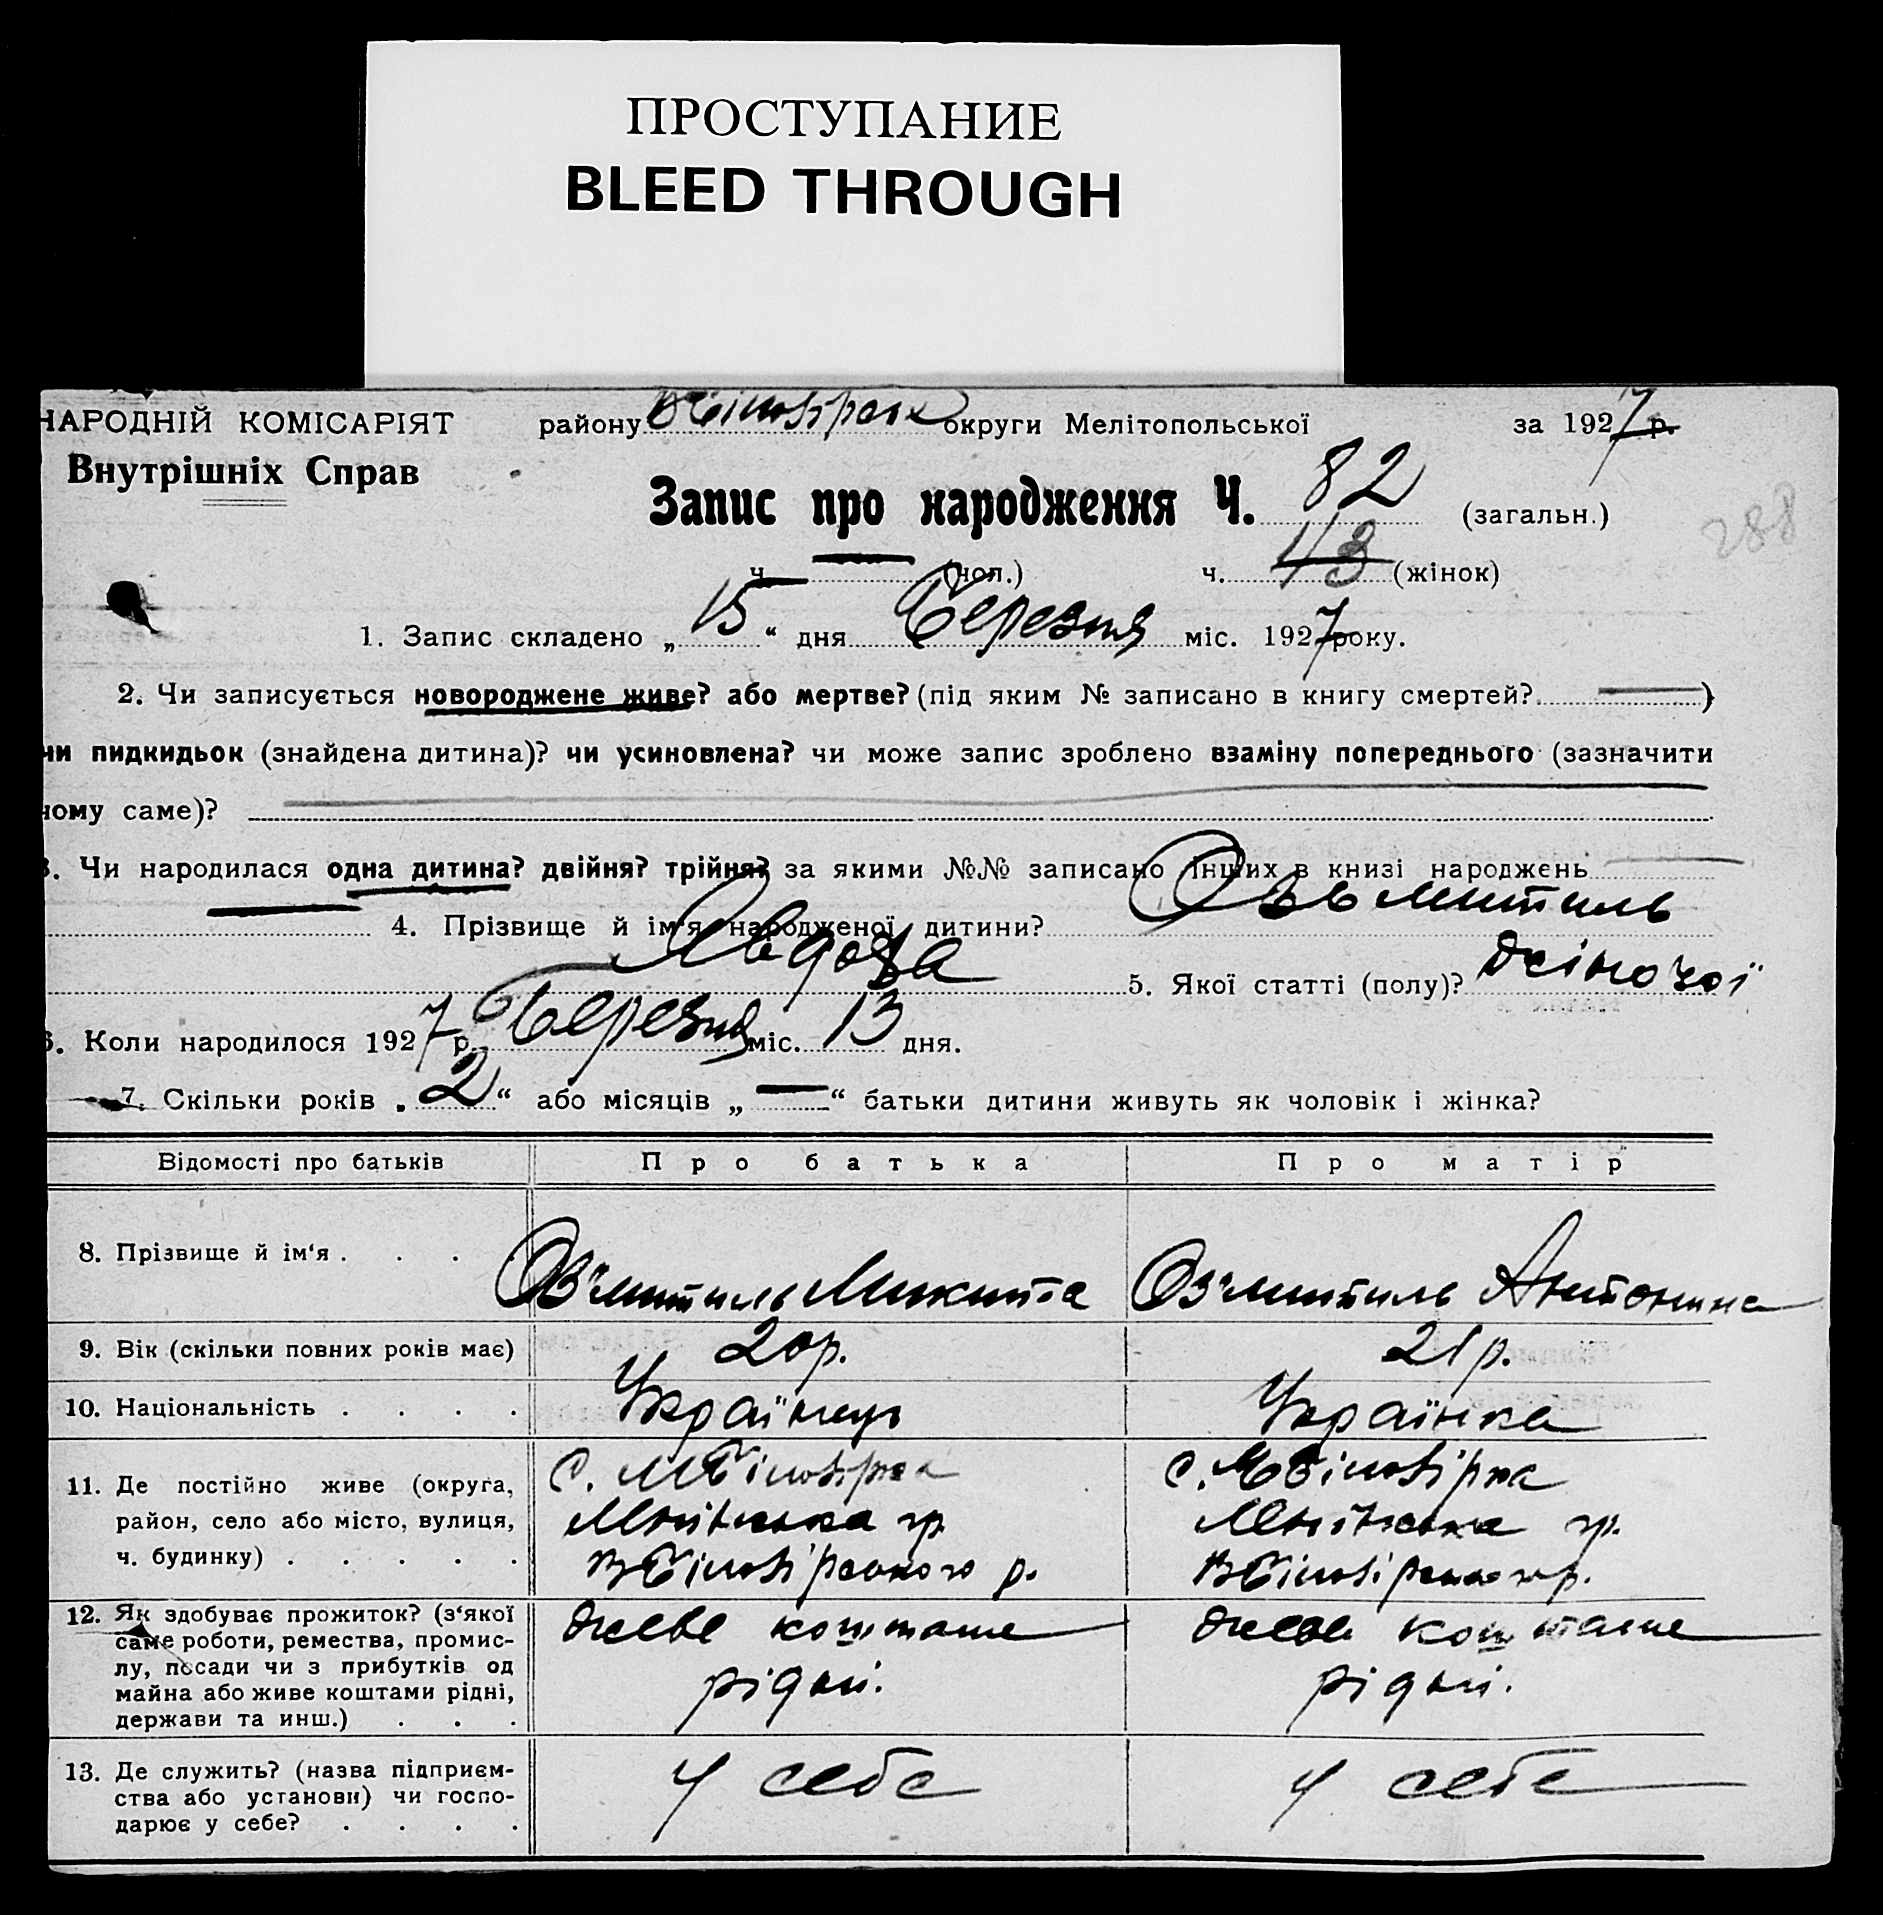 ПРОСТУПАНИЕ
BLEED THROUGH
НАРОДНІЙ КОМІСАРІЯТ району округи Мелітопольської за 1927 р.
Внутрішніх Справ
Запис про народження Ч. 82 (загальн.)
288
ч. — (чол.) ч. 43 (жінок)
1. Запис складено „ 15 “ дня Березня міс. 1927 року.
2. Чи записується новороджене живе? або мертве? (під яким № записано в книгу смертей? — )
чи пидкидьок (знайдена дитина)? чи усиновлена? чи може запис зроблено взаміну попереднього (зазначити
чому саме)?
3. Чи народилася одна дитина? двійня? трійня? за якими №№ записано інших в книзі народжень
4. Прізвище й ім'я народженої дитини?
5. Якої статті (полу)? жіночої
6. Коли народилося 1927 р. Березня міс. 13 дня.
7. Скільки років „ 2 “ або місяців „ — “ батьки дитини живуть як чоловік і жінка?
Відомості про батьків Про батька Про матір
8. Прізвище й ім'я . . . . Микита Антонина
9. Вік (скільки повних років має) 20 р. 21 р.
10. Національність . . . . Українець Українка
11. Де постійно живе (округа, с. МБілозірка с. МБілозірка
район, село або місто, вулиця,
ч. будинку) . . . . . ВБілозірського р. ВБілозірського р.
12. Як здобуває прожиток? (з'якої живе коштами живе коштами
саме роботи, ремества, промис-
лу, посади чи з прибутків од рідні. рідні.
майна або живе коштами рідні,
держави та инш.) . . .
13. Де служить? (назва підприєм- У себе У себе
ства або установи) чи госпо-
дарює у себе? . . . .